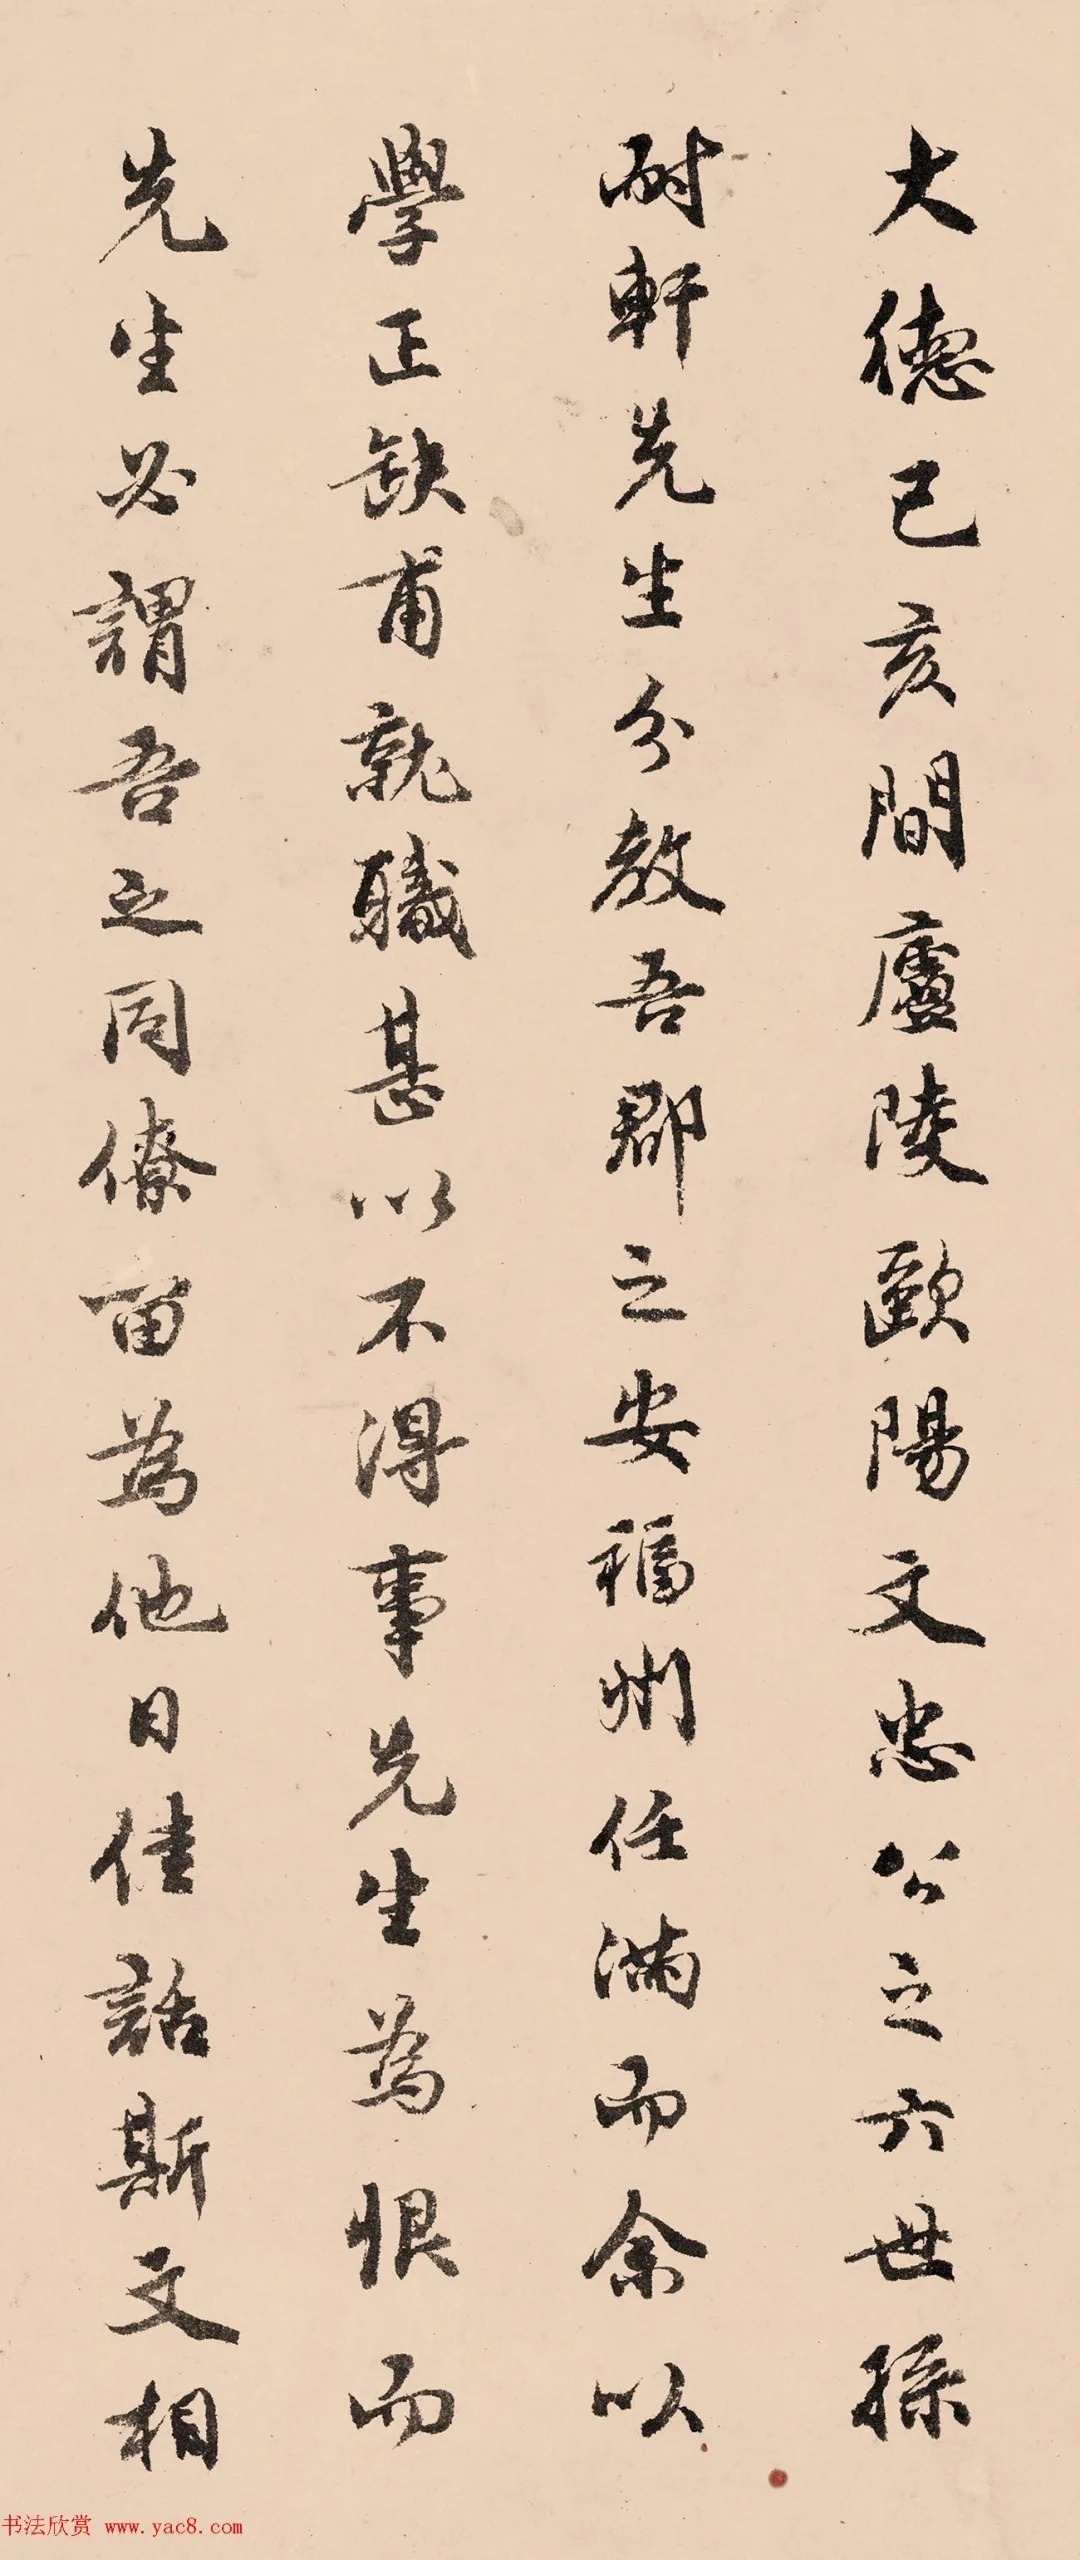 大德己亥間廬陵歐陽文忠公之六世孫
耐軒先生分教吾郡之安福州任滿而余以
學正缺甫就職甚以不得事先生為恨而
先生必謂吾之同僚留為他日佳話斯文相
书法欣赏 www.yac8.com